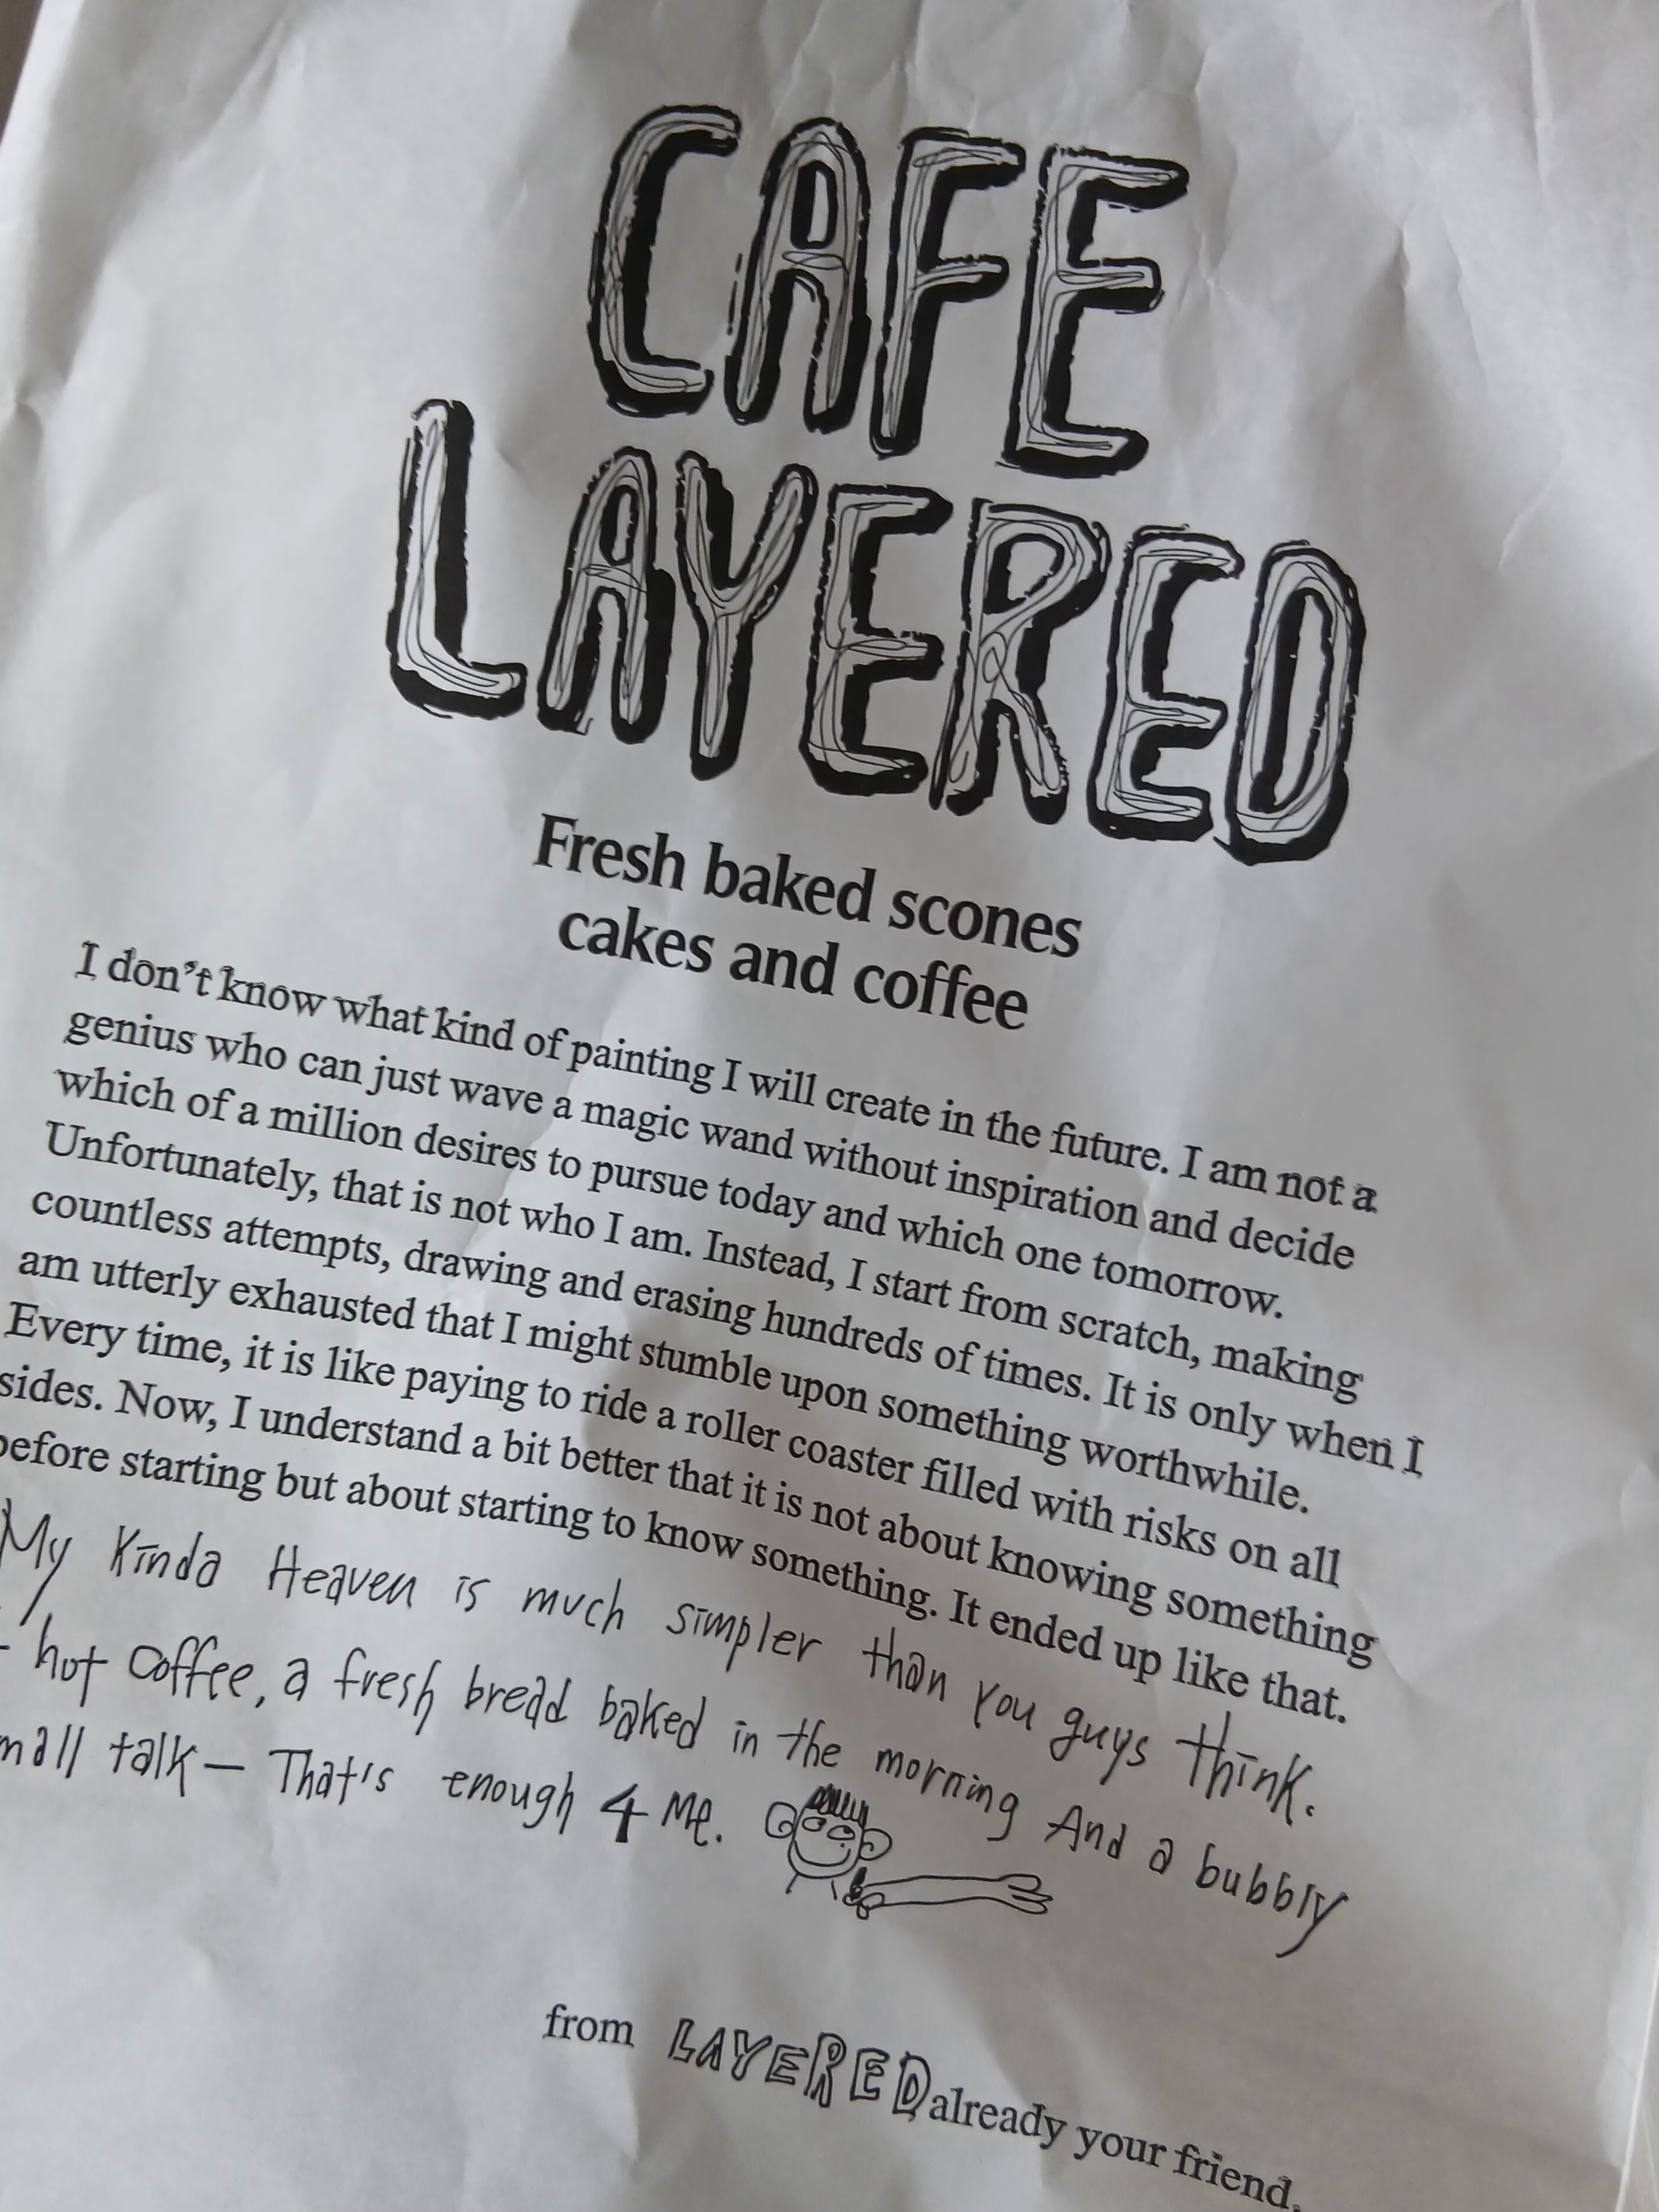 CAFE
LAYERED
Fresh baked scones
cakes and coffee
I don't know what kind of painting I will create in the future. I am not a
genius who can just wave a magic wand without inspiration and decide
which of a million desires to pursue today and which one tomorrow.
Unfortunately, that is not who I am. Instead, I start from scratch, making
countless attempts, drawing and erasing hundreds of times. It is only when I
am utterly exhausted that I might stumble upon something worthwhile.
Every time, it is like paying to ride a roller coaster filled with risks on all
sides. Now, I understand a bit better that it is not about knowing something
before starting but about starting to know something. It ended up like that.
My Kinda Heaven is much simpler than you guys think.
hot coffee, a fresh bread baked in the morning And a bubbly
mall talk — That's enough 4 Me.
from LAYERED already your friend.